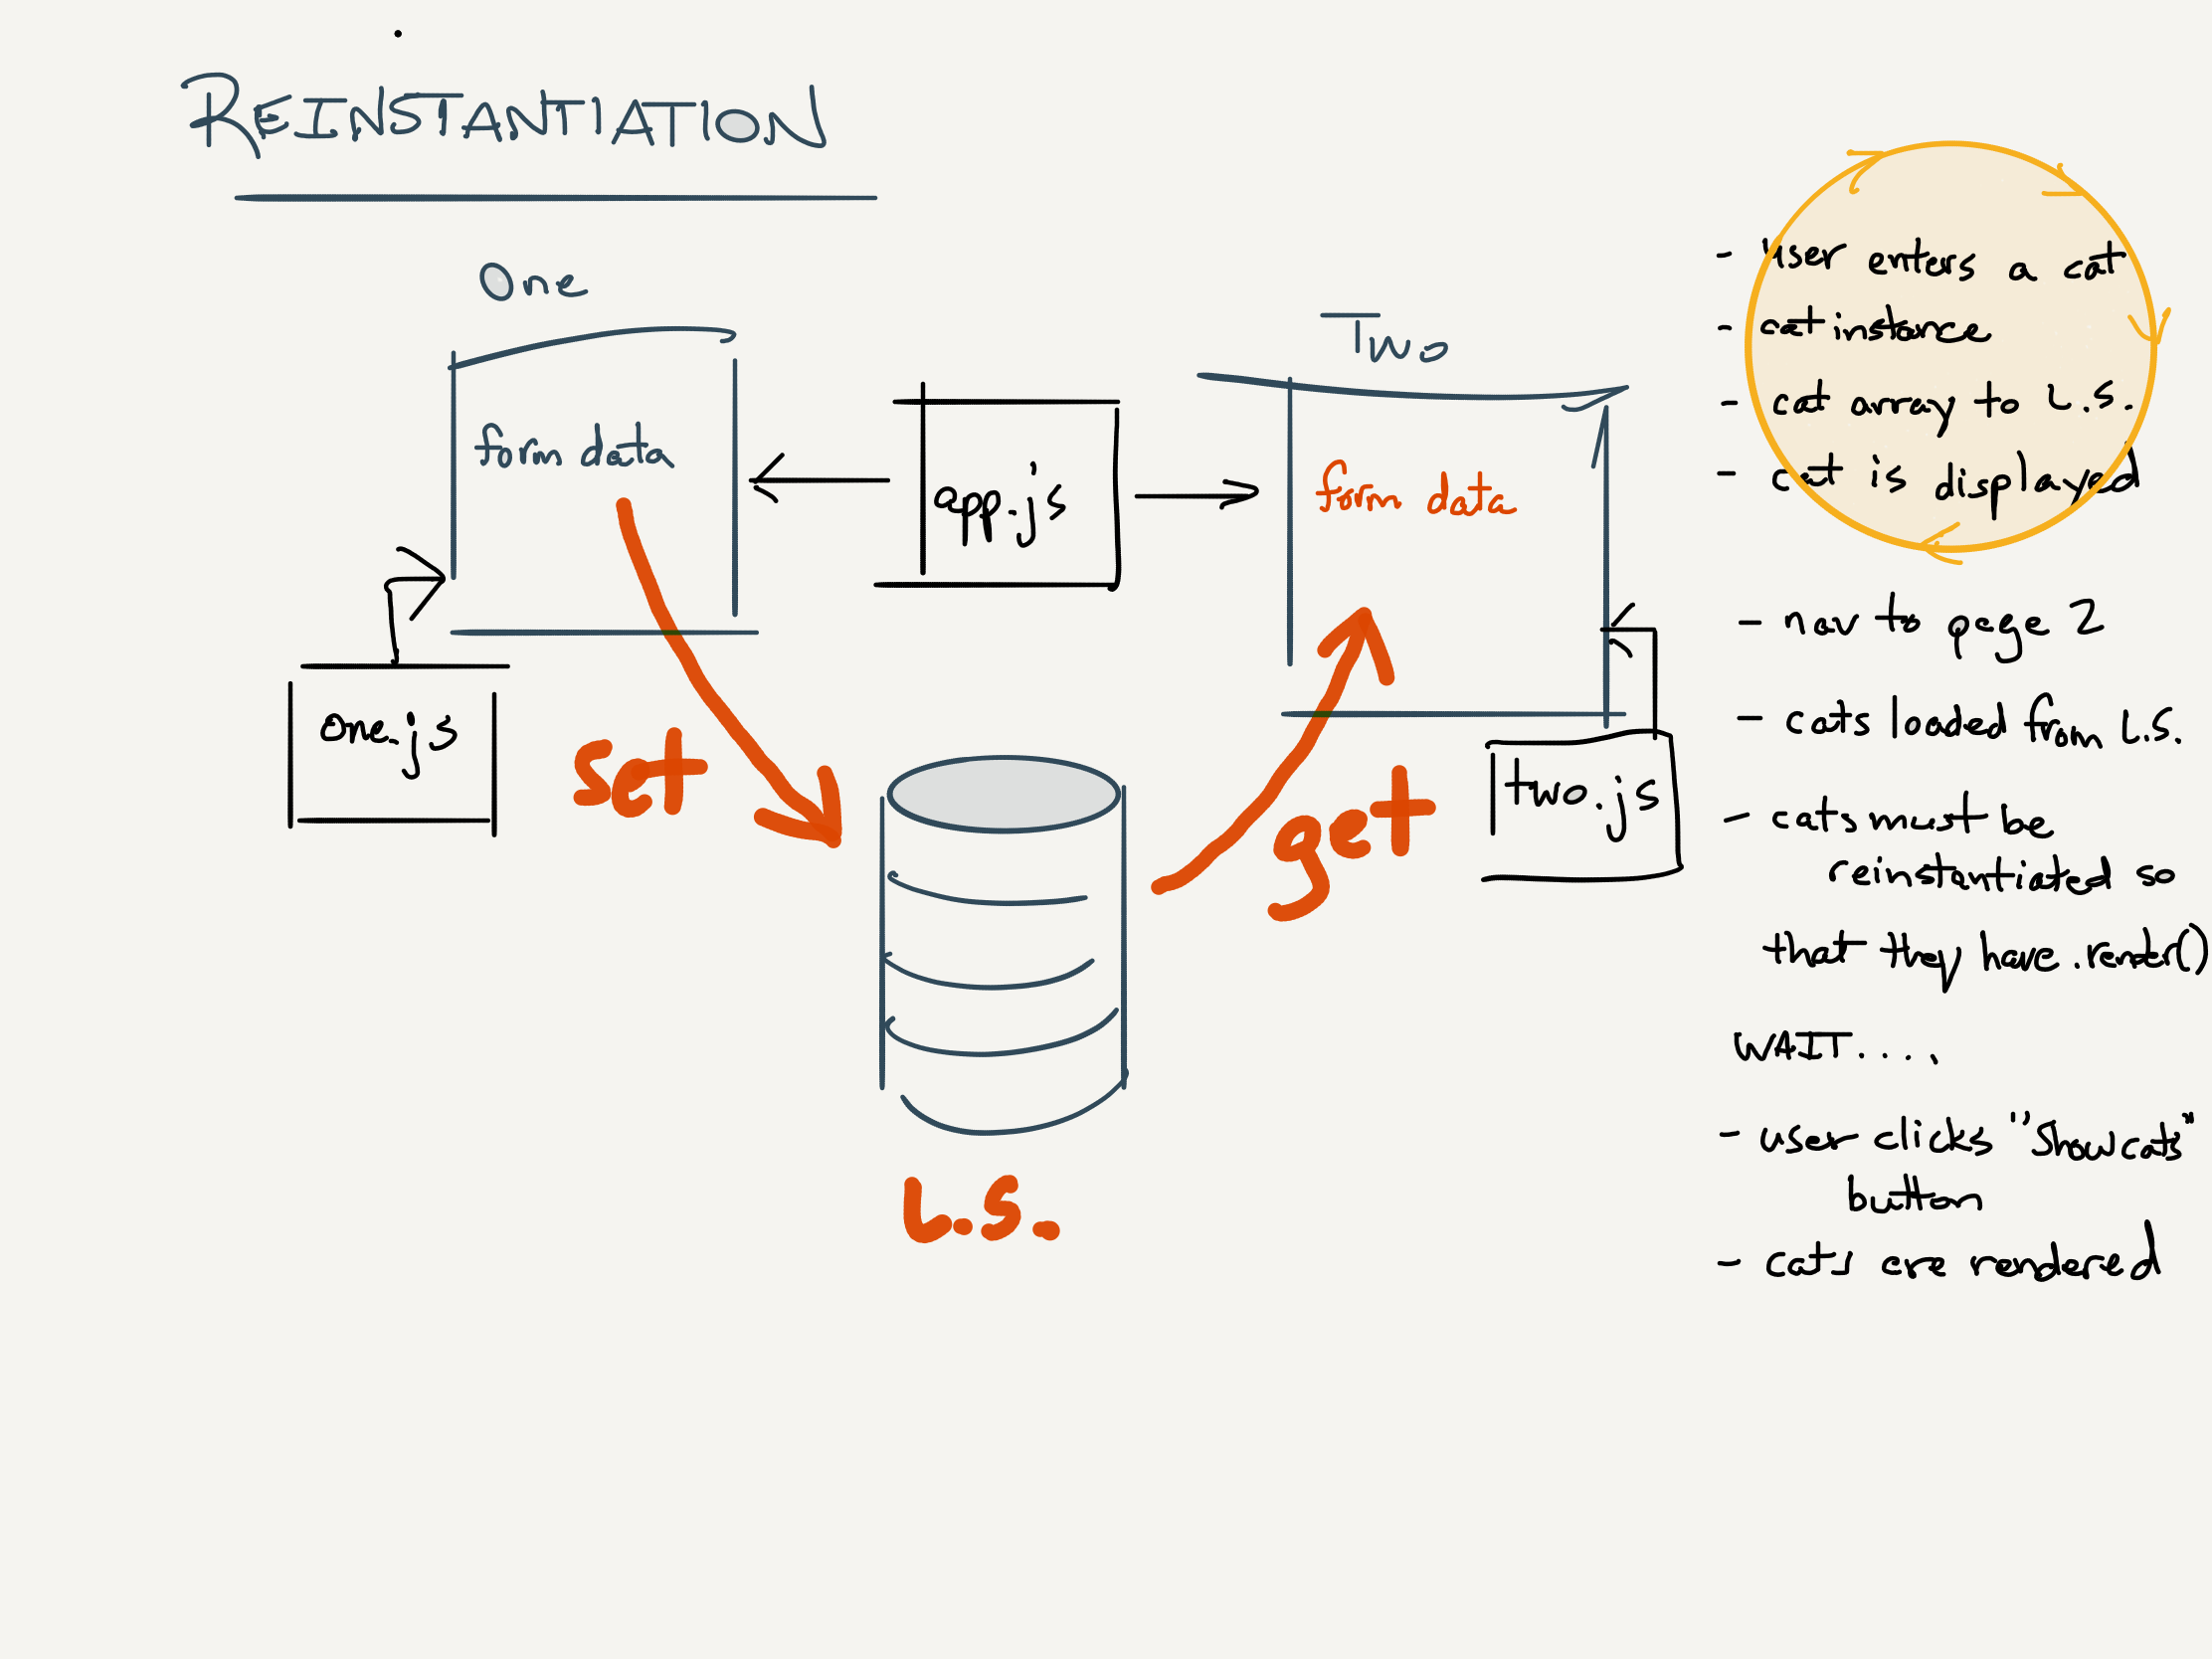 REINSTANTIATION
One
form data
one.js
app.js
Two
form data
two.js
set
get
L.S.
- user enters a cat
- cat instance
- cat array to L.S.
- cat is displayed
- nav to page 2
- cats loaded from L.S.
- cats must be
reinstantiated so
that they have .render()
WAIT....
- user clicks "Show cats"
button
- cats are rendered